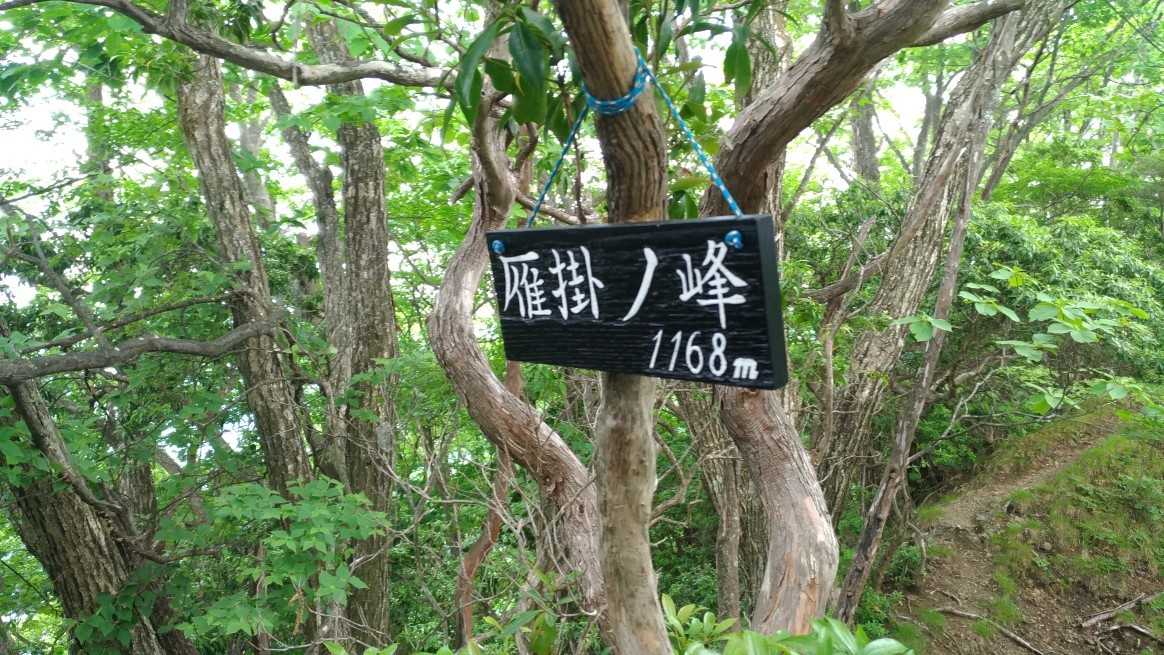 雁掛ノ峰
1168m